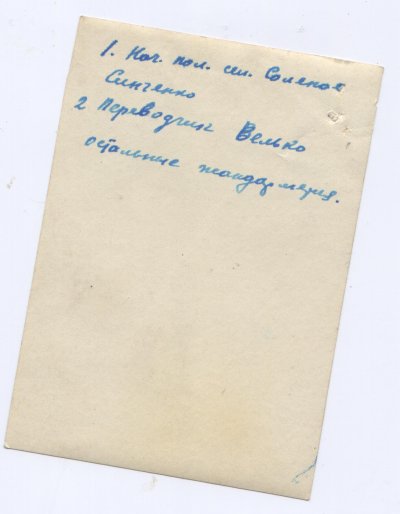 1. Нач. пол. сел. Соленое
Синченко
2 Переводчик Велько
остальные жандармерия.